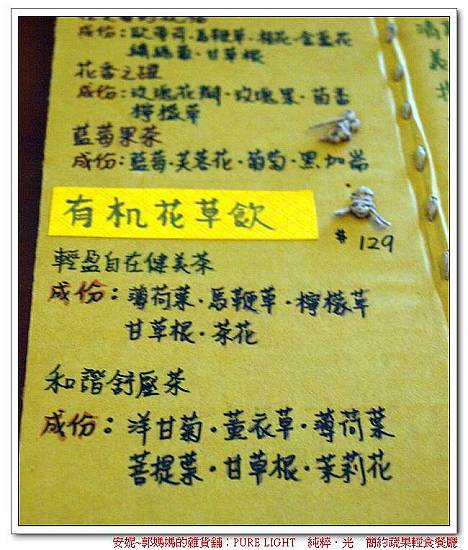 成份：歐蒂荷·馬鞭草·桂花·金盞花
甘草根
花香之磋
成份：玫瑰花瓣·玫瑰果·茴香
檸檬草
藍莓果茶
成份：藍莓·芙蓉花·葡萄·黑加崙
有机花草飲
# 129
輕盈自在健美茶
成份：薄荷葉·馬鞭草·檸檬草
甘草根·茶花
和諧舒壓茶
成份：洋甘菊·薰衣草·薄荷葉
菩提葉·甘草根·茉莉花
安妮~郭媽媽的雜貨鋪：PURE LIGHT 純粹·光 簡約蔬果輕食餐廳